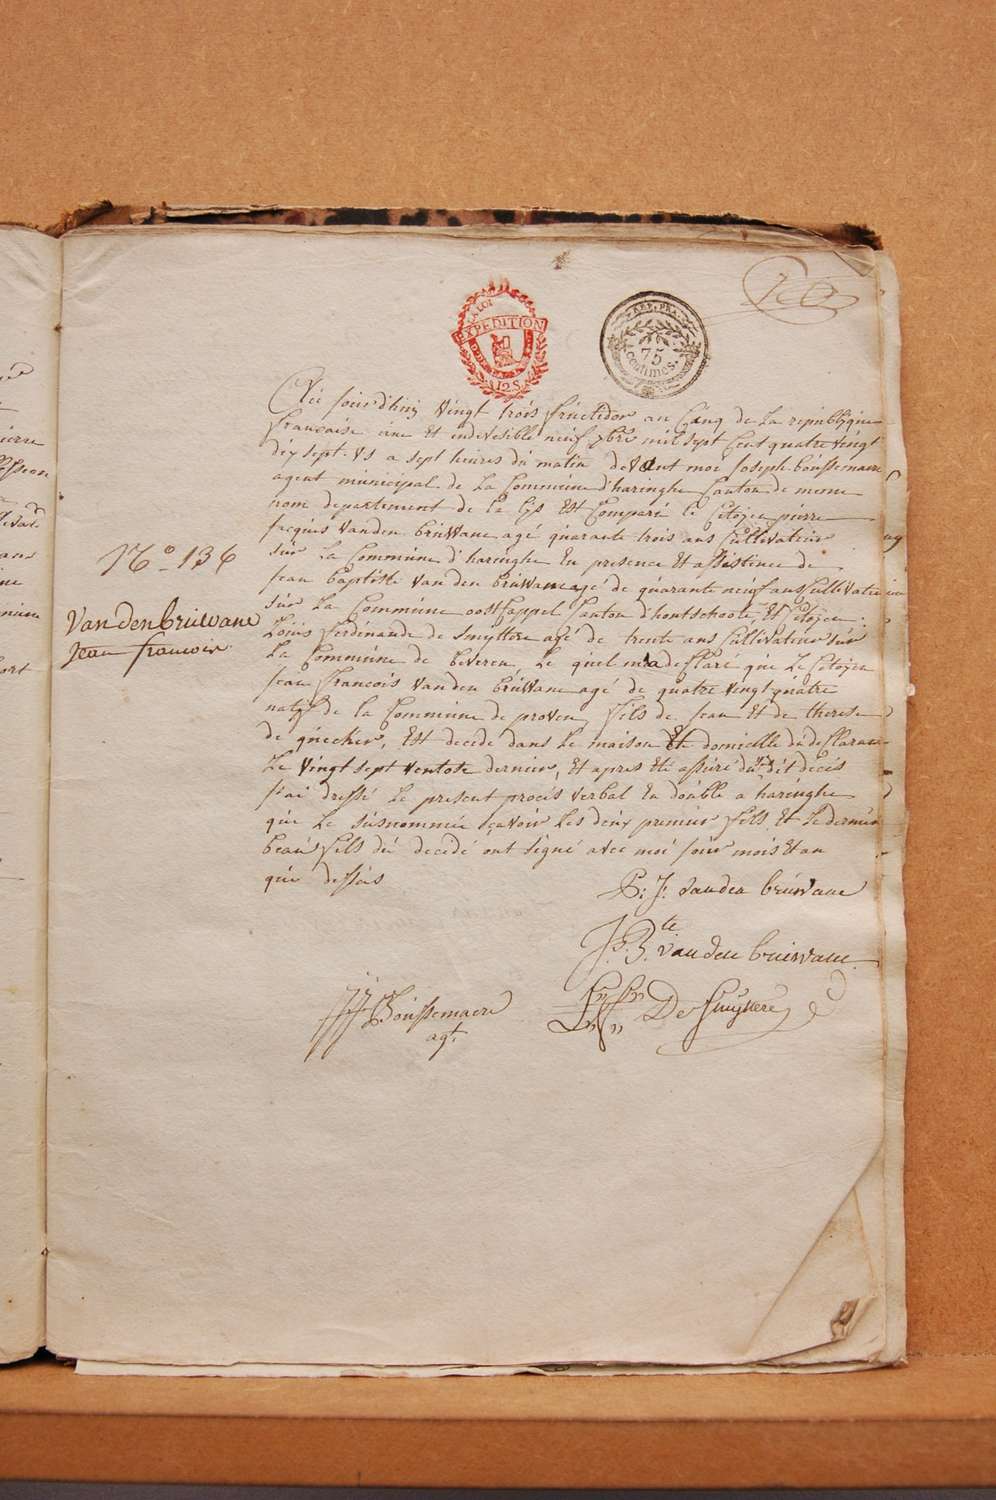 LA LOI
EXPEDITION
125
REP. FRA.
75
centimes.
Cejourd'huÿ vingt trois fructidor an Cinq de la republique
francaise une Et indivisible neuf 7bre mil sept Cent quatre vingt
dix sept. vs a sept heures du matin devant moi Joseph boussemaere
agent municipal de la Commune d'haringhe Canton de meme
nom departement de la lÿs Est Comparú le Citoÿen pierre
jacques vanden brúwane agé quarante trois ans Cultivateur
sur la Commune d'haringhe En presence Et assistence de
jean baptiste vanden brúwane agé de quarante neuf ans Cultivateur
sur la Commune oostcappel Canton d'hontschoote, Et Citoÿen
Louis ferdinande de Smÿttere agé de trente ans Cultivateur sur
la Commune de beveren, le quel m'a declaré que le Citoÿen
jean francois vanden brúwane agé de quatre vingt quatre
natif de la Commune de proven, fils de jean Et de therese
de quecker, Est decide dans le maison Et domicille du declarant
le vingt sept ventose dernier, Et apres Eté assúré du dit décès
j'ai dressé le present procès verbal En doúble a haringhe
que le súsnommée sçavoir les deux premier fils Et le dernier
beau fils du decidé ont signé avec moi jour mois Et an
que dessús
N.° 136
Vandenbruwane
jean francois
P: J: vanden brúwane
J. B.te vanden bruwane
JJ Boussemaere
agt.
De Smÿttere